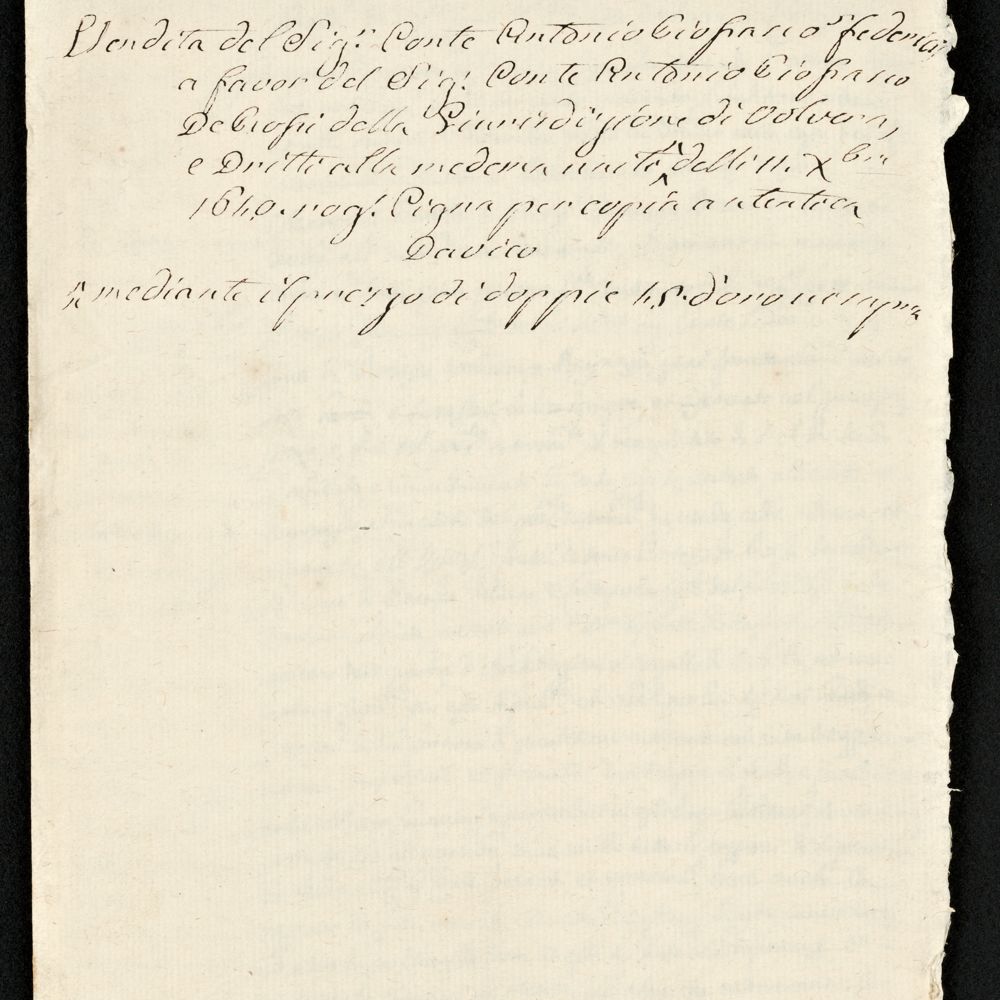 Vendita del Sig.r Conte Antonio Giofranco federici
a favor del Sig.r Conte Antonio Giofranco
DeGrossi della Giurisdizione di Volvera,
e Dritti alla medema uniti ^ delli 11. Xbre
1640. rog.° Pigna per copia autentica
Davico
^ mediante il prezzo di doppie 48. d'oro